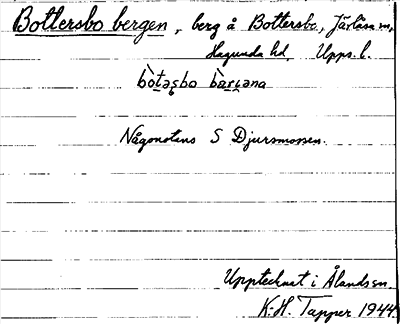 Bottersbo bergen, berg å Bottersbo, Järlåsa sn,
Hagunda hd, Upps. l.
Någonstans S Djursmossen.
Upptecknat i Ålands sn.
K.H. Tapper 1944